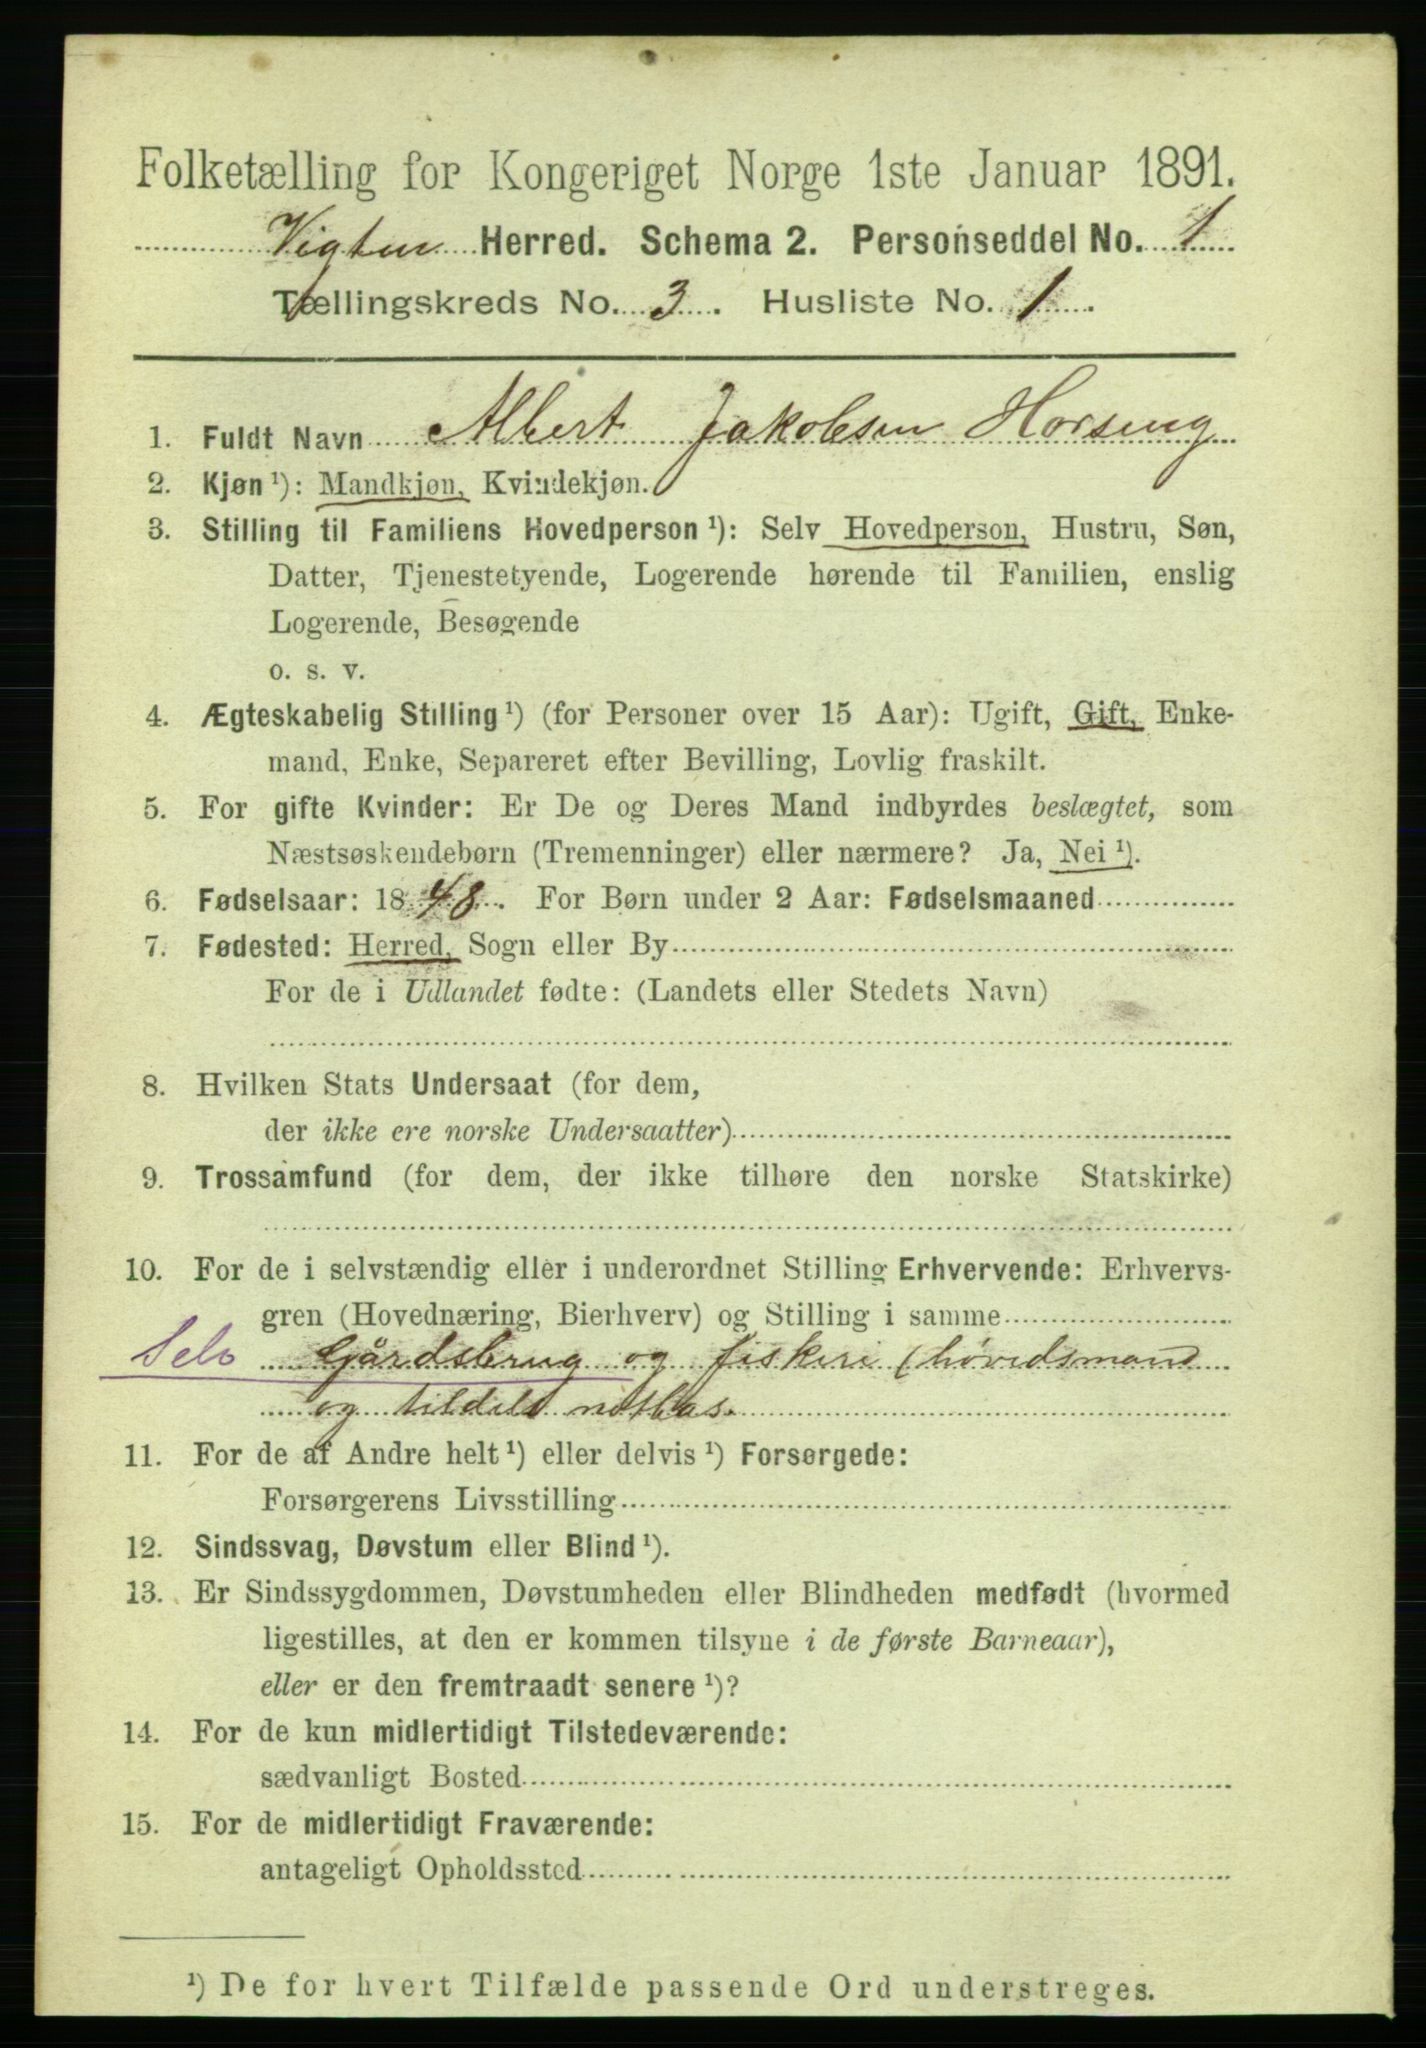 Folketælling for Kongeriget Norge 1ste Januar 1891.
Vigten Herred. Schema 2. Personseddel No. 1
Tællingskreds No. 3. Husliste No. 1.
1. Fuldt Navn Albert Jakobsen Horseng
2. Kjøn ¹): Mandkjøn, Kvindekjøn.
3. Stilling til Familiens Hovedperson ¹): Selv Hovedperson, Hustru, Søn,
Datter, Tjenestetyende, Logerende hørende til Familien, enslig
Logerende, Besøgende
o. s. v.
4. Ægteskabelig Stilling ¹) (for Personer over 15 Aar): Ugift, Gift, Enke-
mand, Enke, Separeret efter Bevilling, Lovlig fraskilt.
5. For gifte Kvinder: Er De og Deres Mand indbyrdes beslægtet, som
Næstsøskendebørn (Tremenninger) eller nærmere? Ja, Nei ¹).
6. Fødselsaar: 1848. For Børn under 2 Aar: Fødselsmaaned
7. Fødested: Herred, Sogn eller By
For de i Udlandet fødte: (Landets eller Stedets Navn)
8. Hvilken Stats Undersaat (for dem,
der ikke ere norske Undersaatter)
9. Trossamfund (for dem, der ikke tilhøre den norske Statskirke)
10. For de i selvstændig eller i underordnet Stilling Erhvervende: Erhvervs-
gren (Hovednæring, Bierhverv) og Stilling i samme
Selv Gårdsbrug og fiskeri (høvedsmand
og tildels notbas.
11. For de af Andre helt ¹) eller delvis ¹) Forsørgede:
Forsørgerens Livsstilling
12. Sindssvag, Døvstum eller Blind ¹).
13. Er Sindssygdommen, Døvstumheden eller Blindheden medfødt (hvormed
ligestilles, at den er kommen tilsyne i de første Barneaar),
eller er den fremtraadt senere ¹)?
14. For de kun midlertidigt Tilstedeværende:
sædvanligt Bosted
15. For de midlertidigt Fraværende:
antageligt Opholdssted
¹) De for hvert Tilfælde passende Ord understreges.